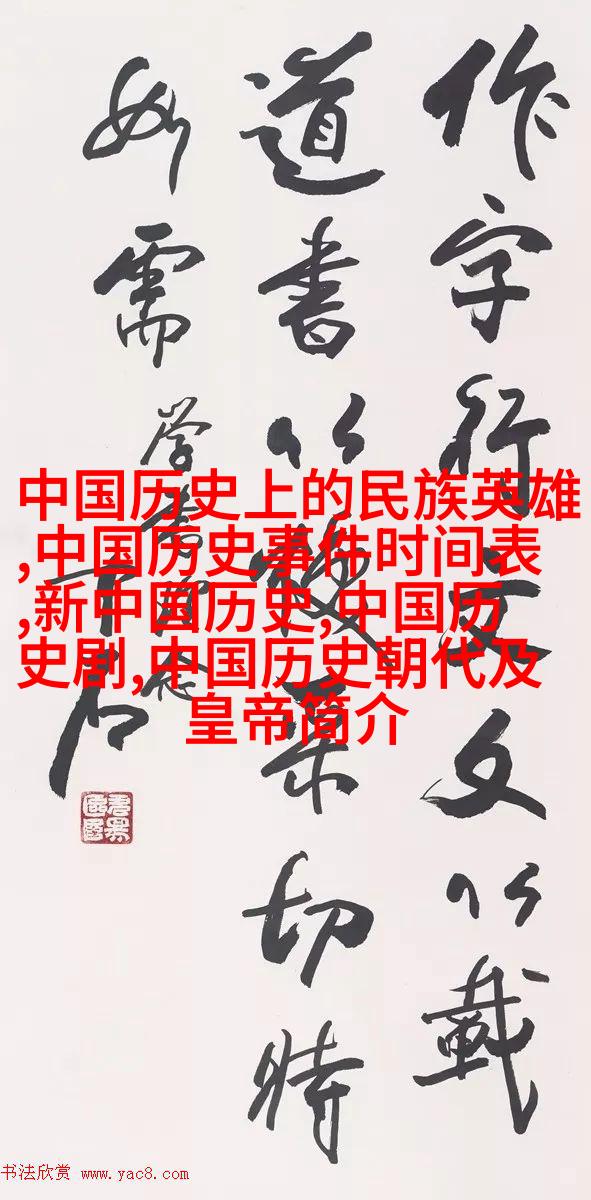 作字行文文以載
道書以采切時
如需
中国历史上的民族英雄
,中国历史事件时间表
,新中国历史,中国历
史剧,中国历史朝代及
皇帝简介
书法欣赏 www.yac8.com